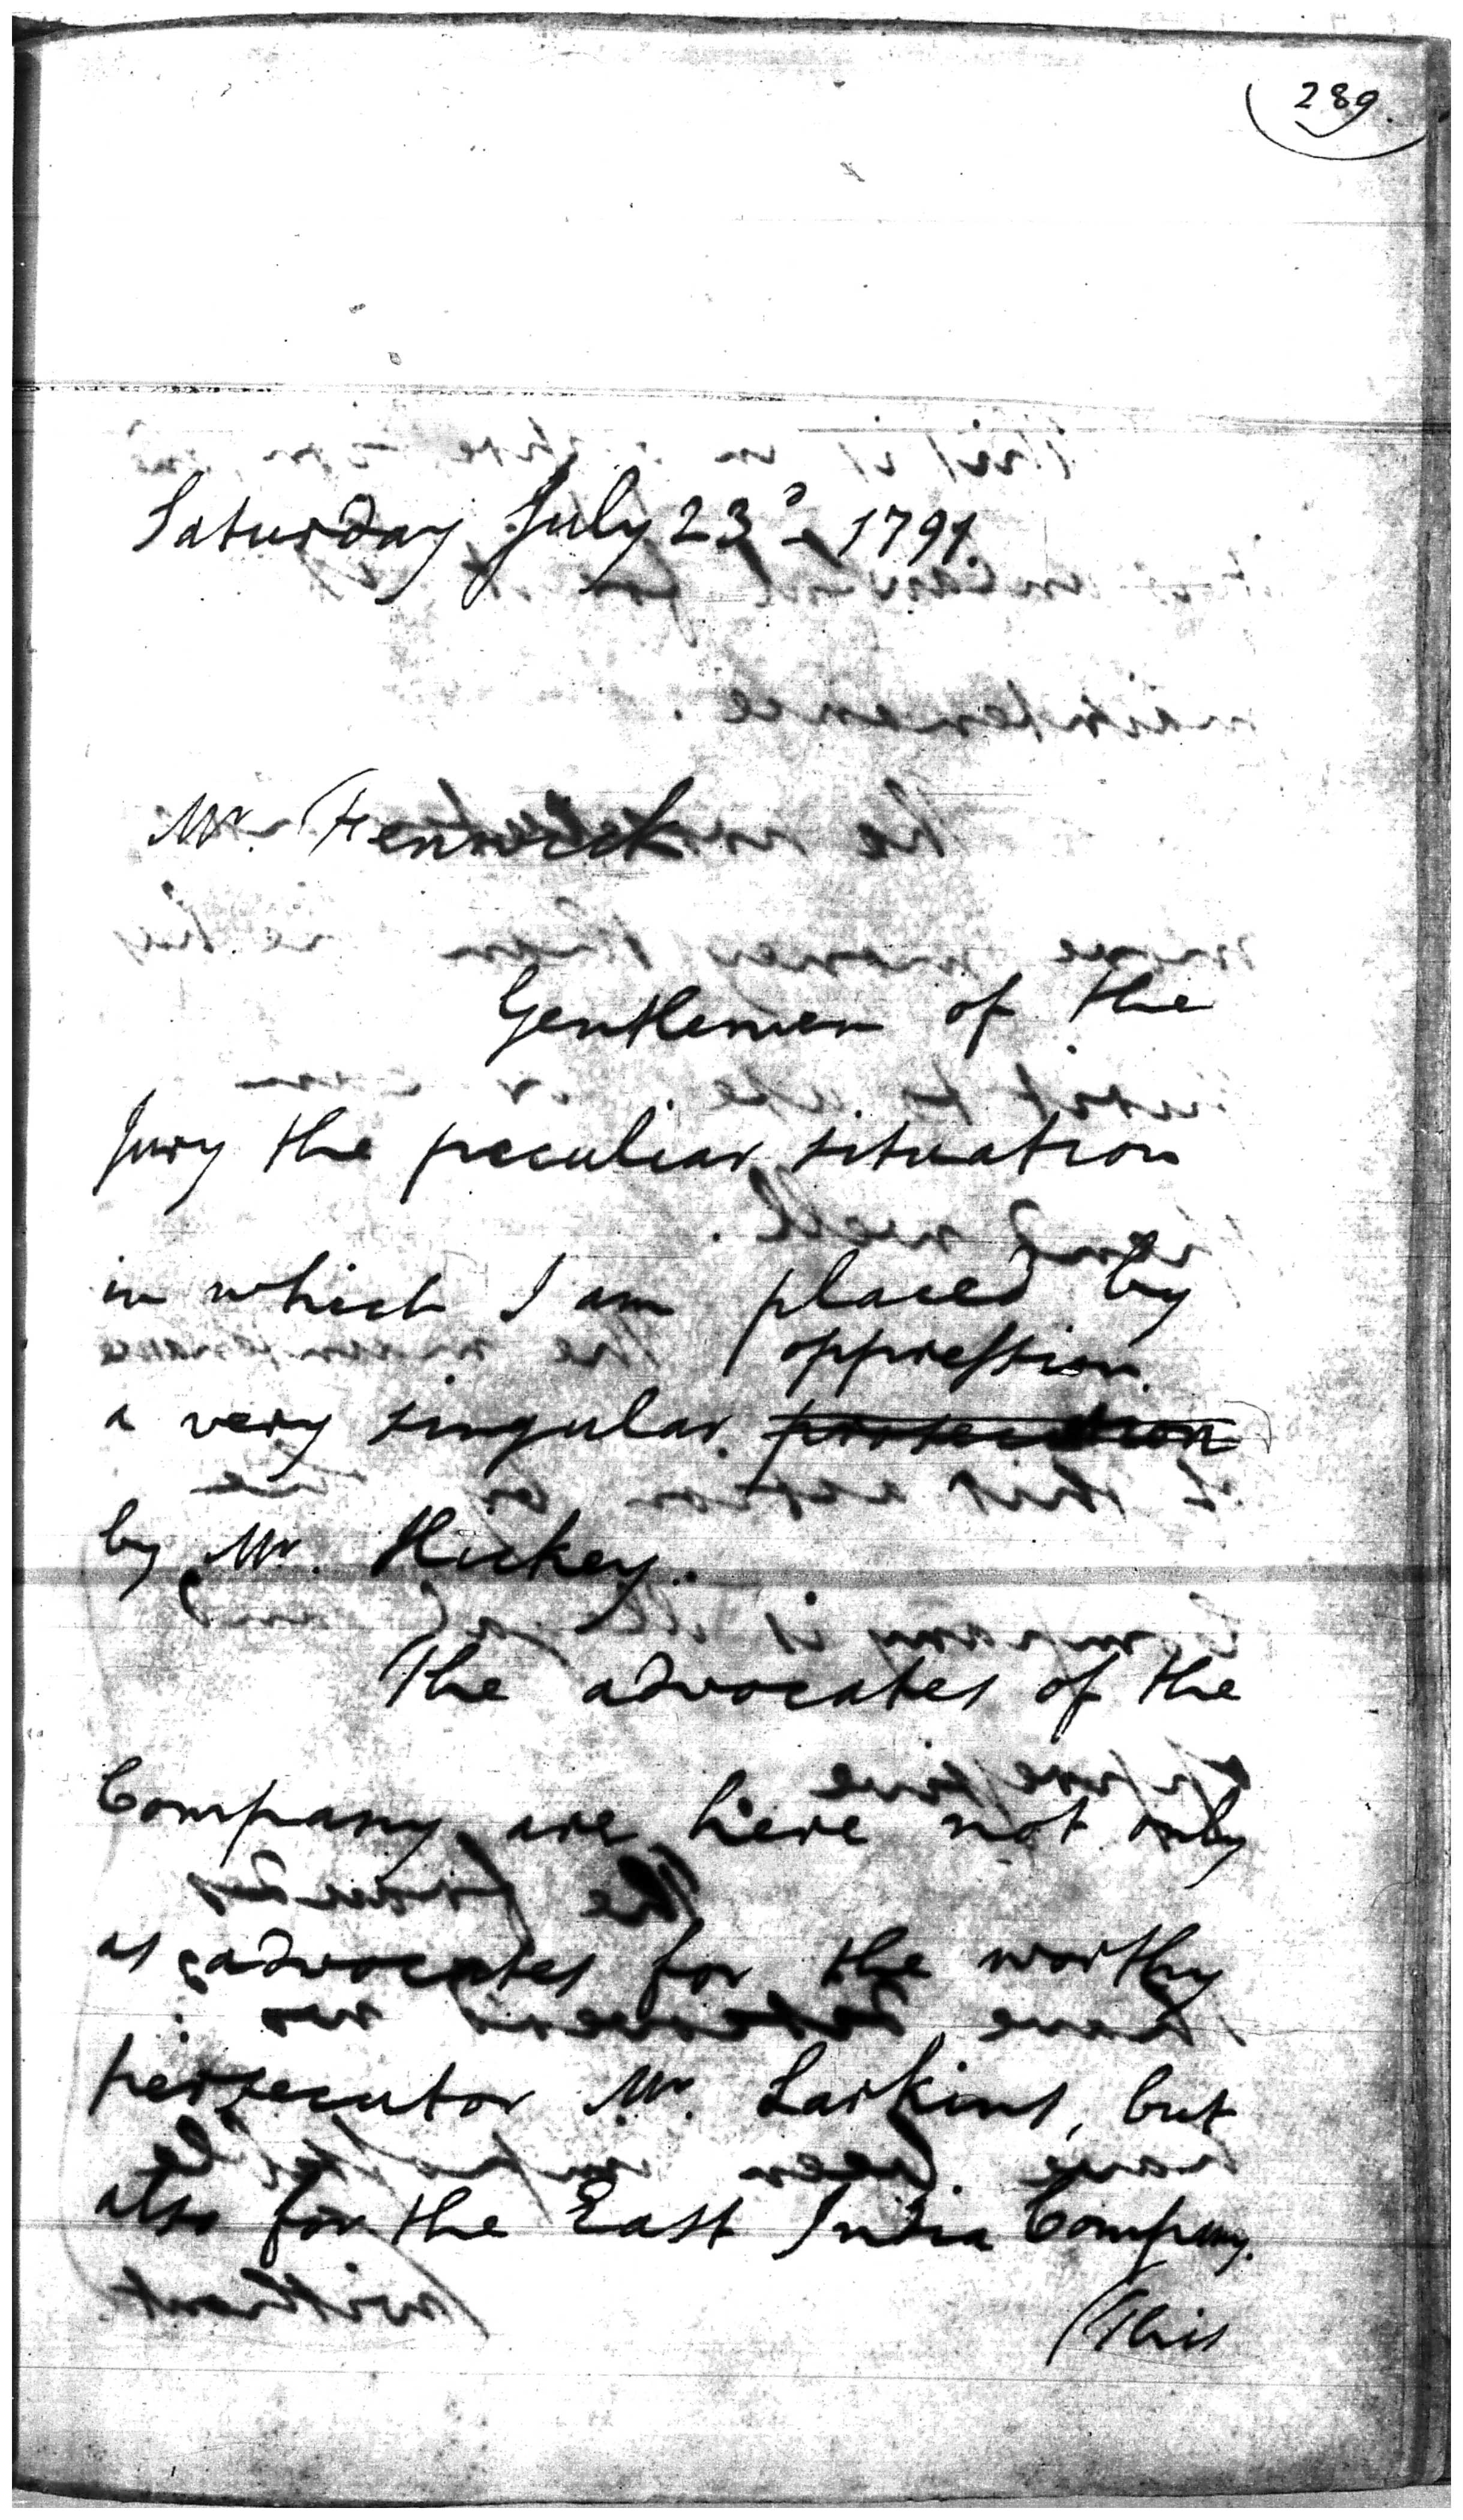 289.
Saturday July 23d 1791.
Mr. Fenwick
Gentlemen of the
Jury the peculiar situation
in which I am placed by
oppression
a very singular prosecution
by Mr. Hickey.
The advocates of the
Company are here not only
as advocates for the worthy
persecutor Mr. Larkins, but
also for the East India Company.
This